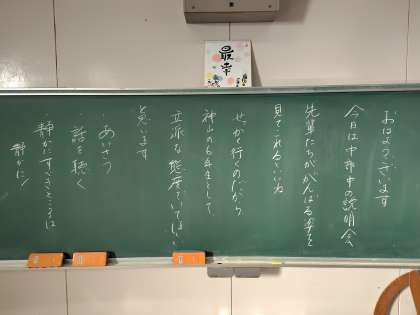 最幸
おはようございます
今日は中部中の説明会
先輩たちががんばる姿を
見てこれるといいね
せっかく行くのだから
神山の6年生として
立派な態度でいてほしい
と思います
・あいさつ
・話を聴く
・静かにすべきところは
静かに!